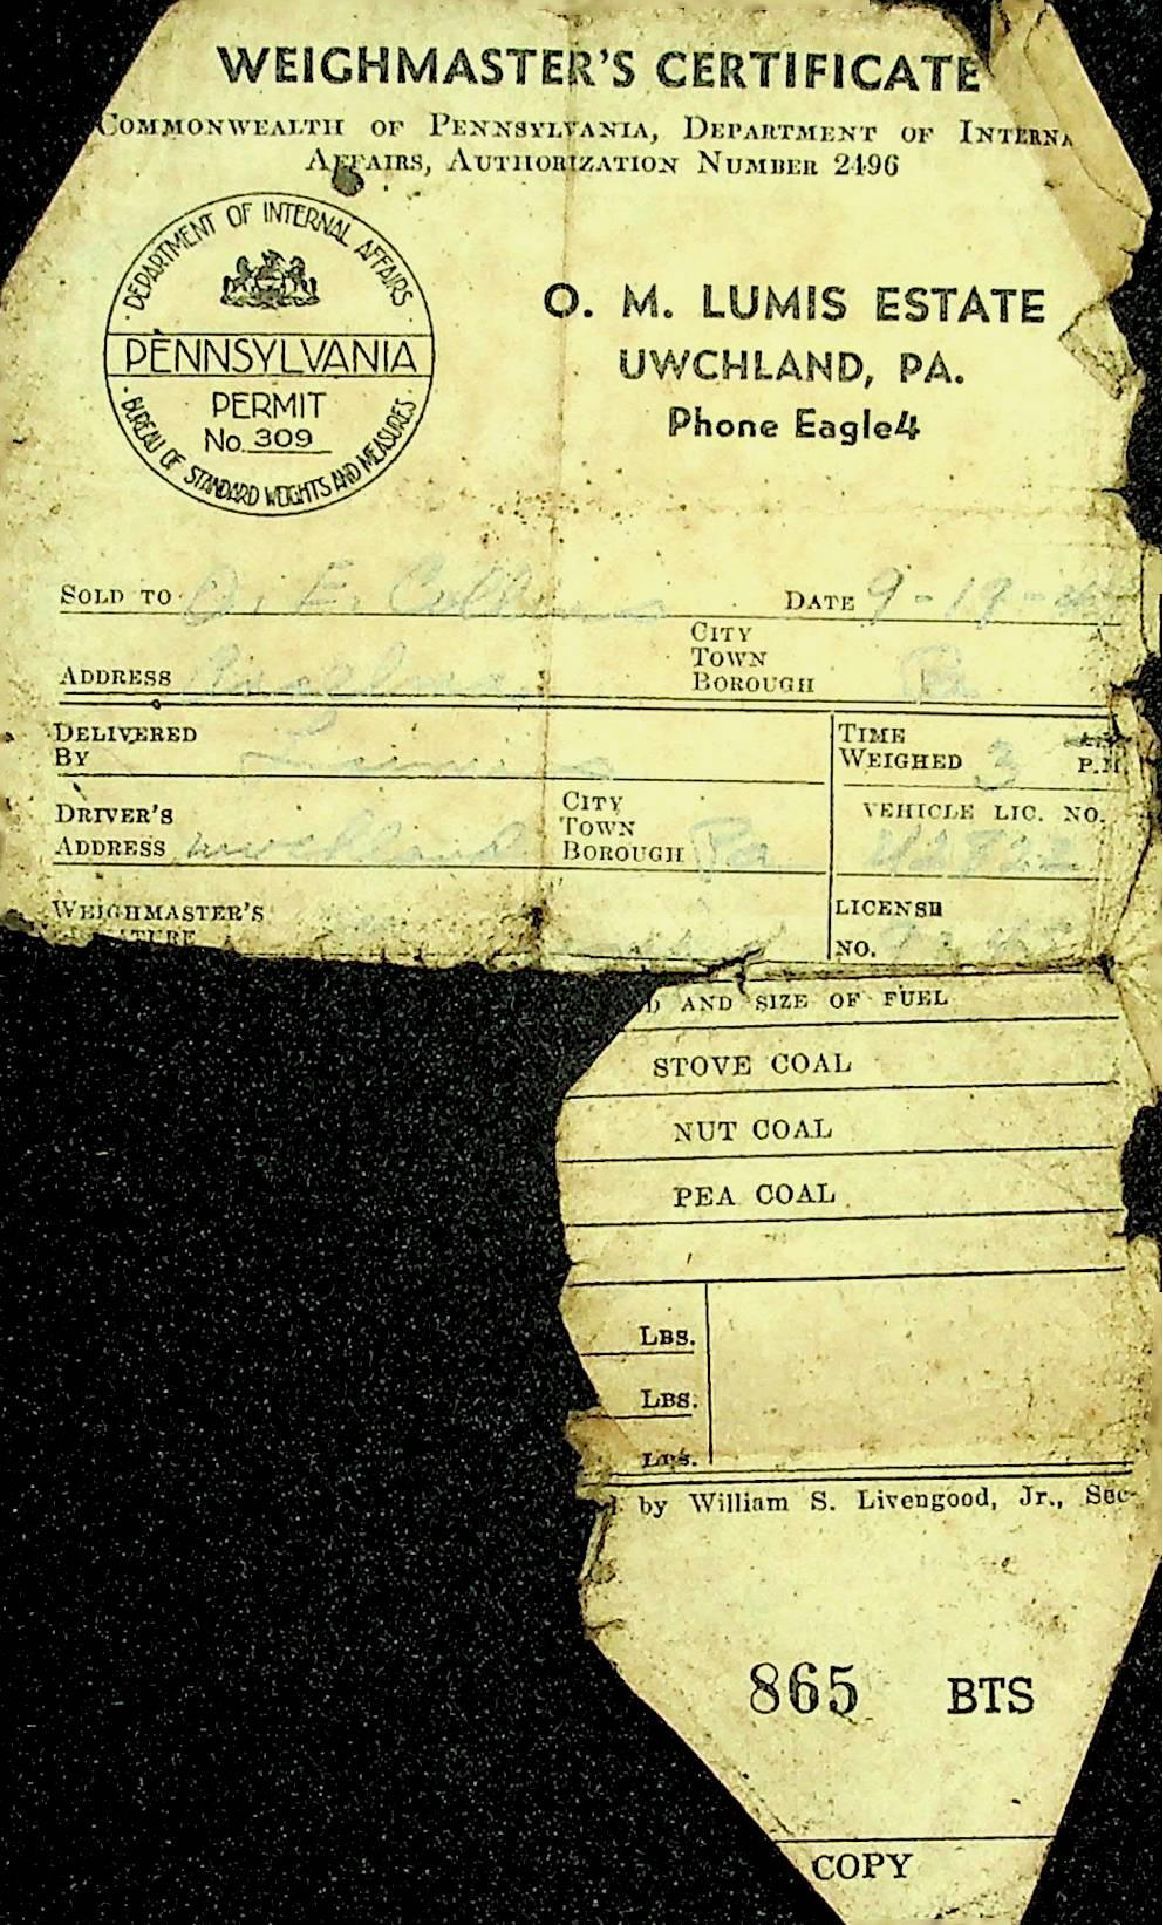 WEIGHMASTER'S CERTIFICATE
COMMONWEALTH OF PENNSYLVANIA, DEPARTMENT OF INTERNA
AFFAIRS, AUTHORIZATION NUMBER 2496
DEPARTMENT OF INTERNAL AFFAIRS
PENNSYLVANIA
PERMIT
No. 309
BUREAU OF STANDARD WEIGHTS AND MEASURES
O. M. LUMIS ESTATE
UWCHLAND, PA.
Phone Eagle4
SOLD TO O. E. DATE 9-19-
CITY
TOWN
ADDRESS BOROUGH Pa
DELIVERED
BY
TIME
WEIGHED 3 P.M.
DRIVER'S
ADDRESS uwchland
CITY
TOWN
BOROUGH Pa
VEHICLE LIC. NO.
WEIGHMASTER'S
ATURE
LICENSE
NO.
D AND SIZE OF FUEL
STOVE COAL
NUT COAL
PEA COAL
LBS.
LBS.
LBS.
by William S. Livengood, Jr., Sec-
865 BTS
COPY